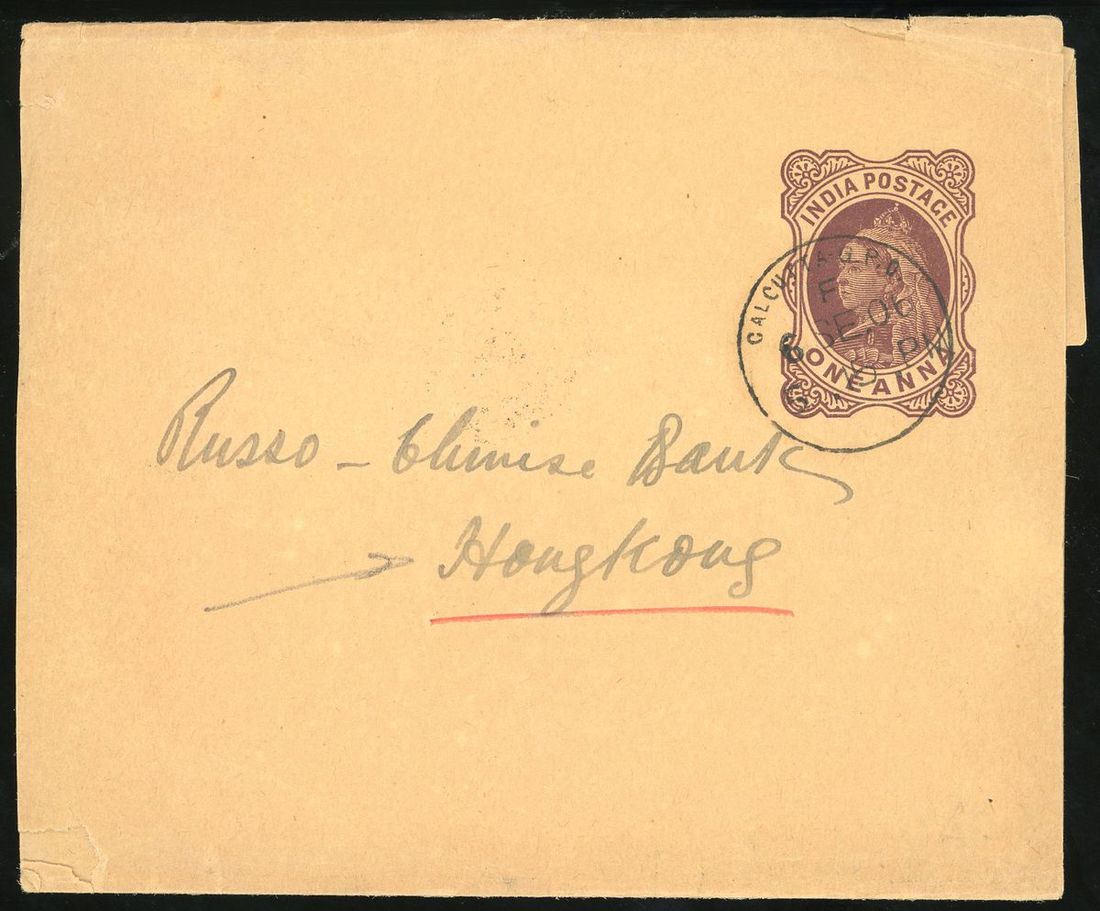 INDIA POSTAGE
CALCUTTA G.P.O.
F
6 SE 06
PM
ONE ANNA
Russo - Chinise Bank
Hongkong